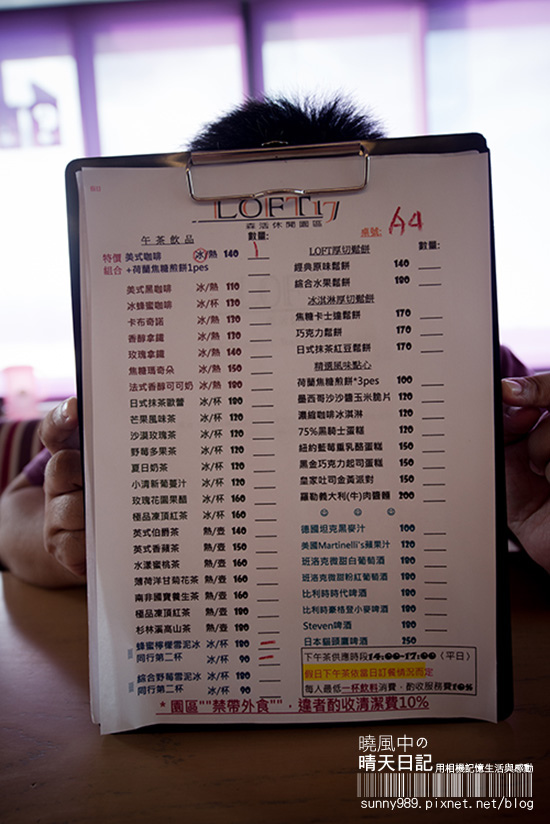 LOFT17
森活休閒園區
桌號: A4
午茶飲品 數量:
特價 美式咖啡 冰/熱 140 1
組合 +荷蘭焦糖煎餅1pes
美式黑咖啡 冰/熱 110
冰蜂蜜咖啡 冰/杯 130
卡布奇諾 冰/熱 130
香醇拿鐵 冰/熱 130
玫瑰拿鐵 冰/熱 140
焦糖瑪奇朵 冰/熱 150
法式香醇可可奶 冰/熱 180
日式抹茶歐蕾 冰/杯 180
芒果風味茶 冰/杯 120
沙漠玫瑰茶 冰/杯 120
野莓多果茶 冰/杯 120
夏日奶茶 冰/杯 120
小清新葡蔓汁 冰/杯 120
玫瑰花園果醋 冰/杯 160
極品凍頂紅茶 冰/杯 160
英式伯爵茶 熱/壺 140
英式香蘋茶 熱/壺 150
水漾蜜桃茶 熱/壺 160
薄荷洋甘菊花茶 熱/壺 160
南非國寶養生茶 熱/壺 160
極品凍頂紅茶 熱/壺 180
杉林溪高山茶 熱/壺 180
蜂蜜檸檬雪泥冰 冰/杯 180
同行第二杯 冰/杯 90
綜合野莓雪泥冰 冰/杯 180
同行第二杯 冰/杯 90
LOFT厚切鬆餅 數量:
經典原味鬆餅 140
綜合水果鬆餅 180
冰淇淋厚切鬆餅
焦糖卡士達鬆餅 170
巧克力鬆餅 170
日式抹茶紅豆鬆餅 170
精選風味點心
荷蘭焦糖煎餅*3pes 100
墨西哥沙沙醬玉米脆片 120
濃緻咖啡冰淇淋 120
75%黑騎士蛋糕 120
紐約藍莓重乳酪蛋糕 150
黑金巧克力起司蛋糕 150
皇家吐司金黃派對 150
羅勒義大利(牛)肉醬麵 200
德國坦克黑麥汁 100
美國Martinelli's蘋果汁 120
班洛克微甜白葡萄酒 180
班洛克微甜粉紅葡萄酒 180
比利時時代啤酒 180
比利時豪格登小麥啤酒 180
Steven啤酒 180
日本貓頭鷹啤酒 250
下午茶供應時段14:00-17:00〈平日〉
假日下午茶依當日訂餐情況而定
每人最低一杯飲料消費,酌收服務費10%
*園區""禁帶外食"",違者酌收清潔費10%
曉風中の
晴天日記 用相機記憶生活與感動
sunny989.pixnet.net/blog